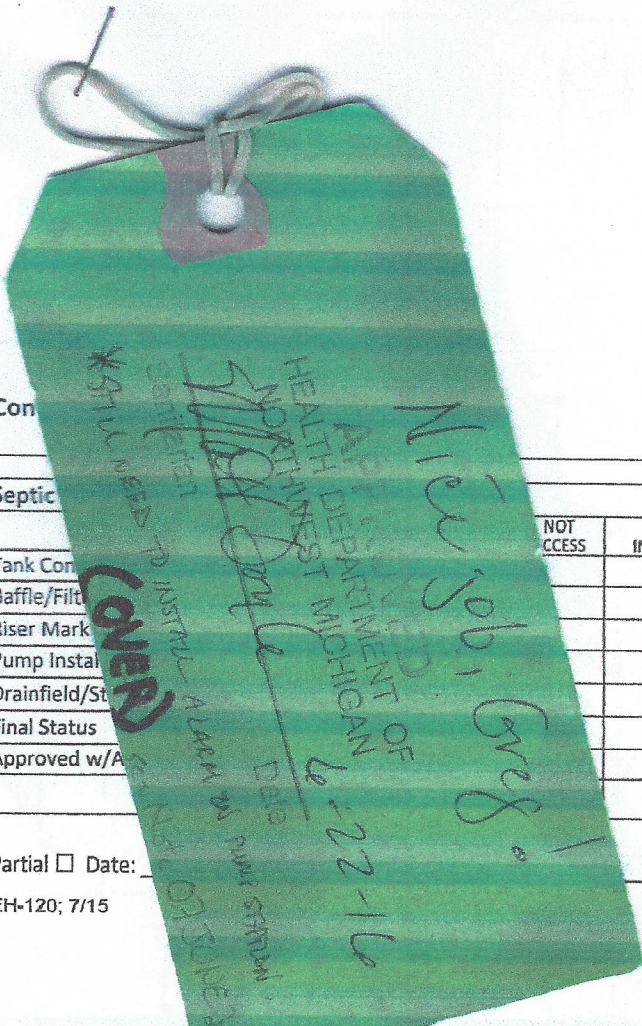 Nice job, Greg!
APPROVED
HEALTH DEPARTMENT OF
NORTHWEST MICHIGAN
6-22-16
Sanitarian
Date
*STILL NEED TO INSTALL ALARM ON PUMP STATION.
(OVER)
Con
Septic
NOT
CCESS
IN
Tank Con
Baffle/Filt
Riser Mark
Pump Instal
Drainfield/St
Final Status
Approved w/A
Partial ☐ Date:
EH-120; 7/15